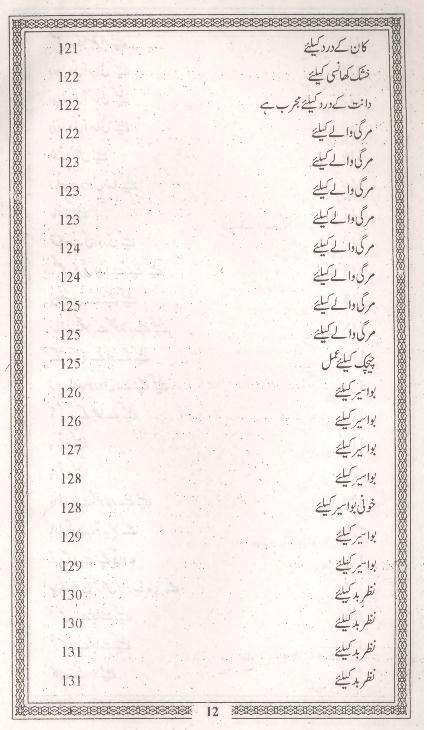 کان کے درد کیلئے 121
خشک کھانسی کیلئے 122
دانت کے درد کیلئے مجرب ہے 122
مرگی والے کیلئے 122
مرگی والے کیلئے 123
مرگی والے کیلئے 123
مرگی والے کیلئے 123
مرگی والے کیلئے 124
مرگی والے کیلئے 124
مرگی والے کیلئے 125
مرگی والے کیلئے 125
چیچک کیلئے عمل 125
بواسیر کیلئے 126
بواسیر کیلئے 126
بواسیر کیلئے 127
بواسیر کیلئے 128
خونی بواسیر کیلئے 128
بواسیر کیلئے 129
بواسیر کیلئے 129
نظر بد کیلئے 130
نظر بد کیلئے 130
نظر بد کیلئے 131
نظر بد کیلئے 131
12